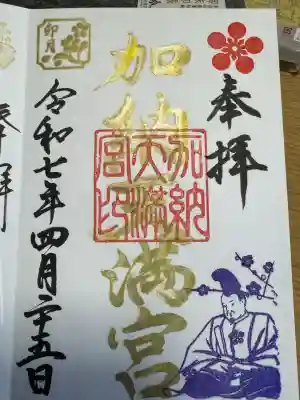 奉拝
加納天満宮
加納
天満
宮印
卯月
令和七年四月二十五日
奉拝